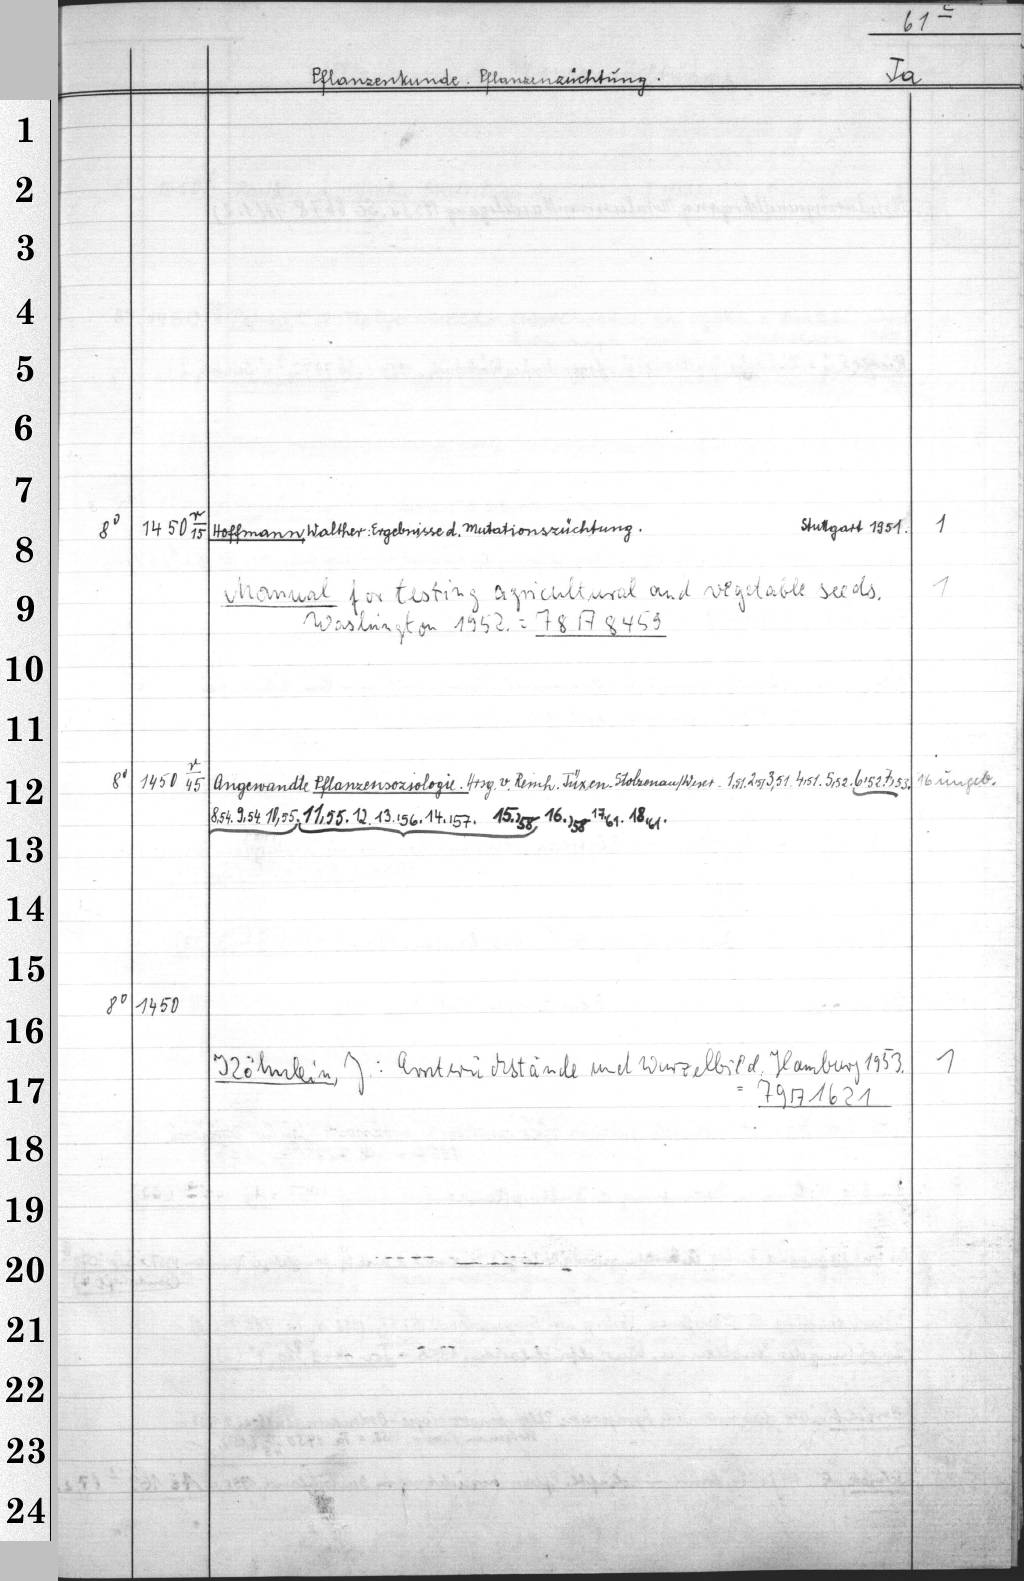 61ᶜ
Pflanzenkunde. Pflanzenzüchtung. Ja
1
2
3
4
5
6
7
8° 1450 r/15 Hoffmann, Walther: Ergebnisse d. Mutationszüchtung. Stuttgart 1951. 1
8
Manual for testing agricultural and vegetable seeds. 1
9
Washington 1952. = 78 17 8459
10
11
8° 1450 r/45 Angewandte Pflanzensoziologie. Hrsg. v. Reinh. Tüxen. Stolzenau/Weser. 1,51. 2,51. 3,51. 4,51. 5,52. 6,52. 7,53. 16 ungeb.
12
8,54. 9,54. 10,55. 11,55. 12. 13.,56. 14.,57. 15.,58. 16.,58 17,61. 18,61.
13
14
15
8° 1450
16
Köhnlein, J.: Ernterückstände und Wurzelbild. Hamburg 1953. 1
17
= 79 17 1621
18
19
20
21
22
23
24